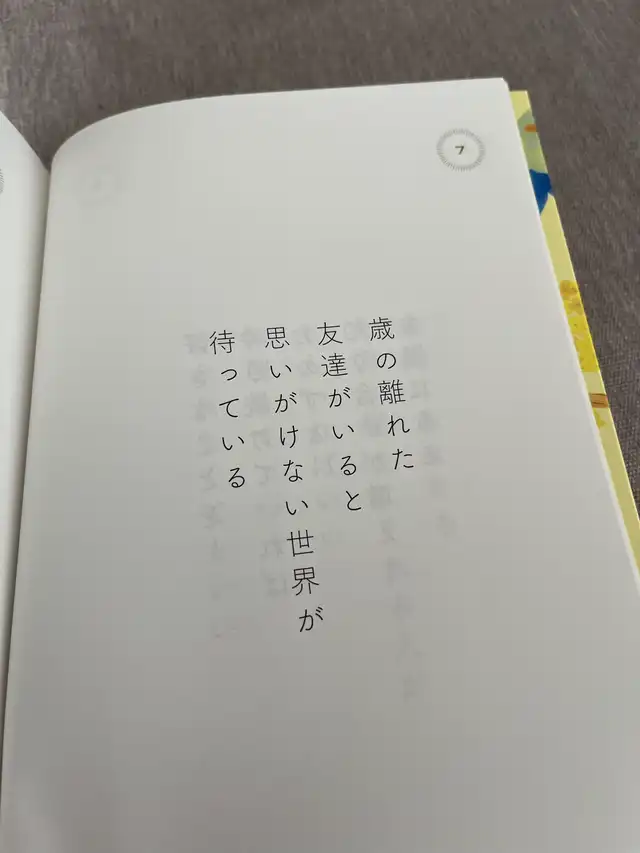 7
歳の離れた
友達がいると
思いがけない世界が
待っている